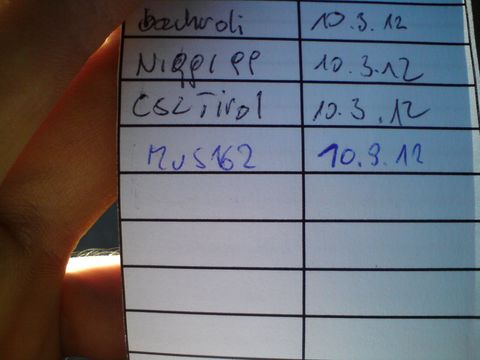 bachroli 10.3.12
Niggi99 10.3.12
CSZTirol 10.3.12
MuS162 10.3.12